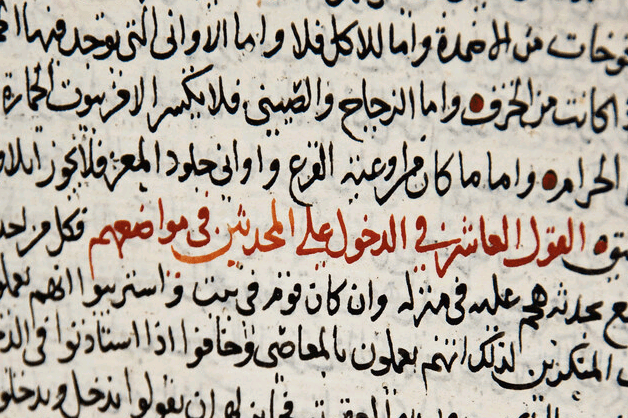 من الاضمدة واما للاكل فلا واما الاوانى التى توجد فيها
كانت من الخزف واما الزجاج والصينى فلا يكسر الا فى بيوت الخمارة
الحرام واما ما كان من اوعية القرع واوانى جلود المعز فلا يجوز
القول العاشر فى الدخول على المحدثين فى مواضعهم فكل من
بحدثه هجم عليه فى منزله وان كان قوم فى بيت واسترييوا انهم
المنكرين لذلك انهم يعملون بالمعاصى وخافوا اذا استاذنوا فى
ان يقولوا ندخل وندخلو